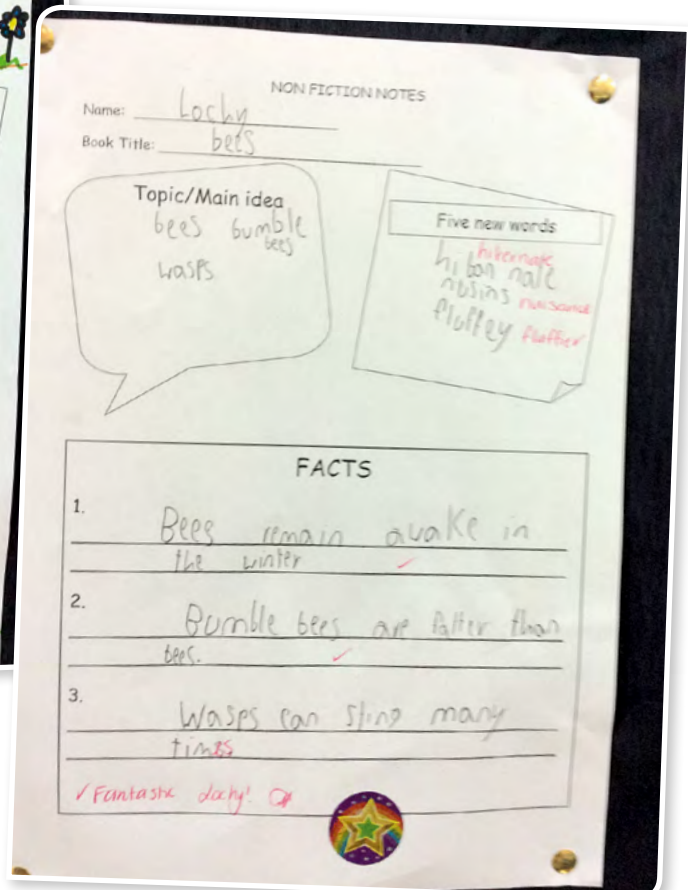 NON FICTION NOTES
Name: Lochy
Book Title: bees
Topic/Main idea
bees bumble
bees
wasps
Five new words
hibernate
hi bon nate
nusins nuisance
fluffey fluffier
FACTS
1.
Bees remain awake in
the winter ✓
2.
Bumble bees are fatter than
bees. ✓
3.
Wasps can sting many
times
✓ Fantastic Lochy!